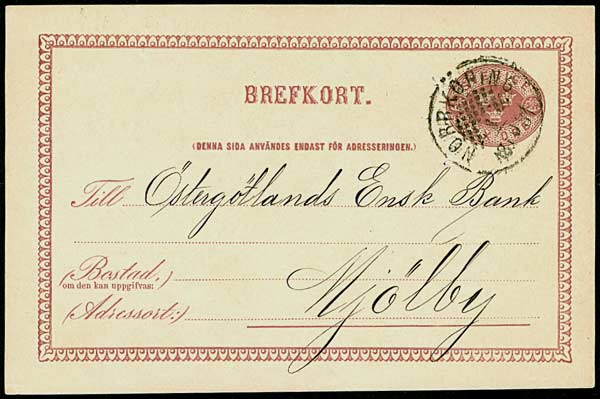 BREFKORT.
NORRKÖPING
(DENNA SIDA ANVÄNDES ENDAST FÖR ADRESSERINGEN.)
Till Östergötlands Ensk Bank
(Bostad,)
om den kan uppgifvas:
(Adressort:) Mjölby